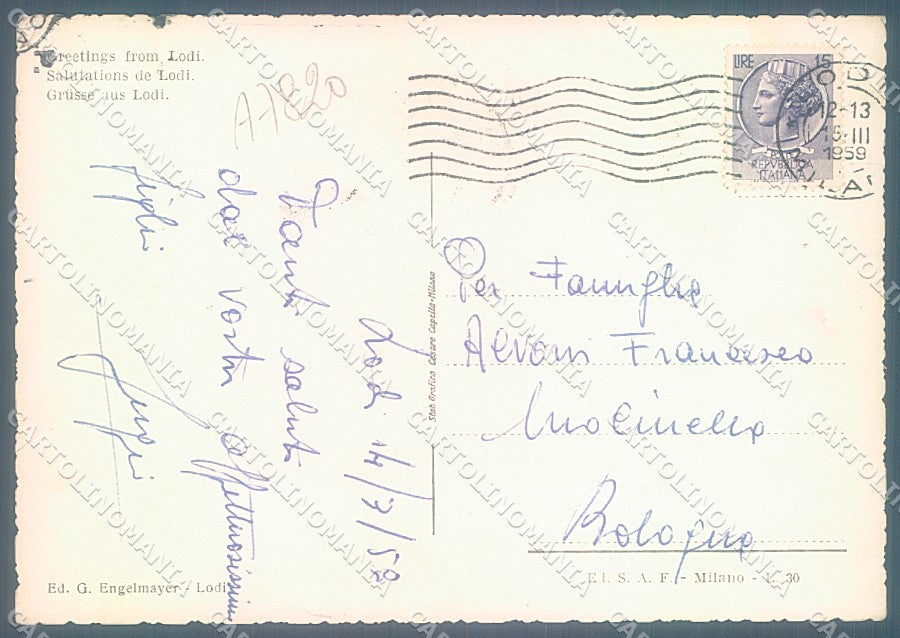 Greetings from Lodi.
Salutations de Lodi.
Grüsse aus Lodi.
A7820
Lodi 14/3/59
Tanti saluti
dai vostri affettuosissimi
figli
Luigi
Stab. Grafico Cesare Capello - Milano
LIRE 15
POSTE
REPVBBLICA
ITALIANA
12-13
15·III
1959
Per Famiglia
Alvoni Francesco
Molinella
Bologna
Ed. G. Engelmayer - Lodi
E l. S. A. F. - Milano - L. 30
CARTOLINOMANIA